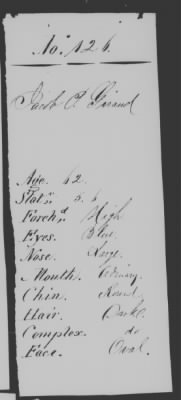 No. 126.
Jacob P. Giraud
Age. 62.
Stat're. 5. 6
Foreh'd. High
Eyes. Blue.
Nose. Large.
Mouth. Ordinary.
Chin. Round.
Hair. Dark.
Complex. do
Face. Oval.